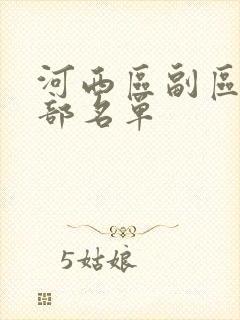 河西區副區
部名單
5姑娘